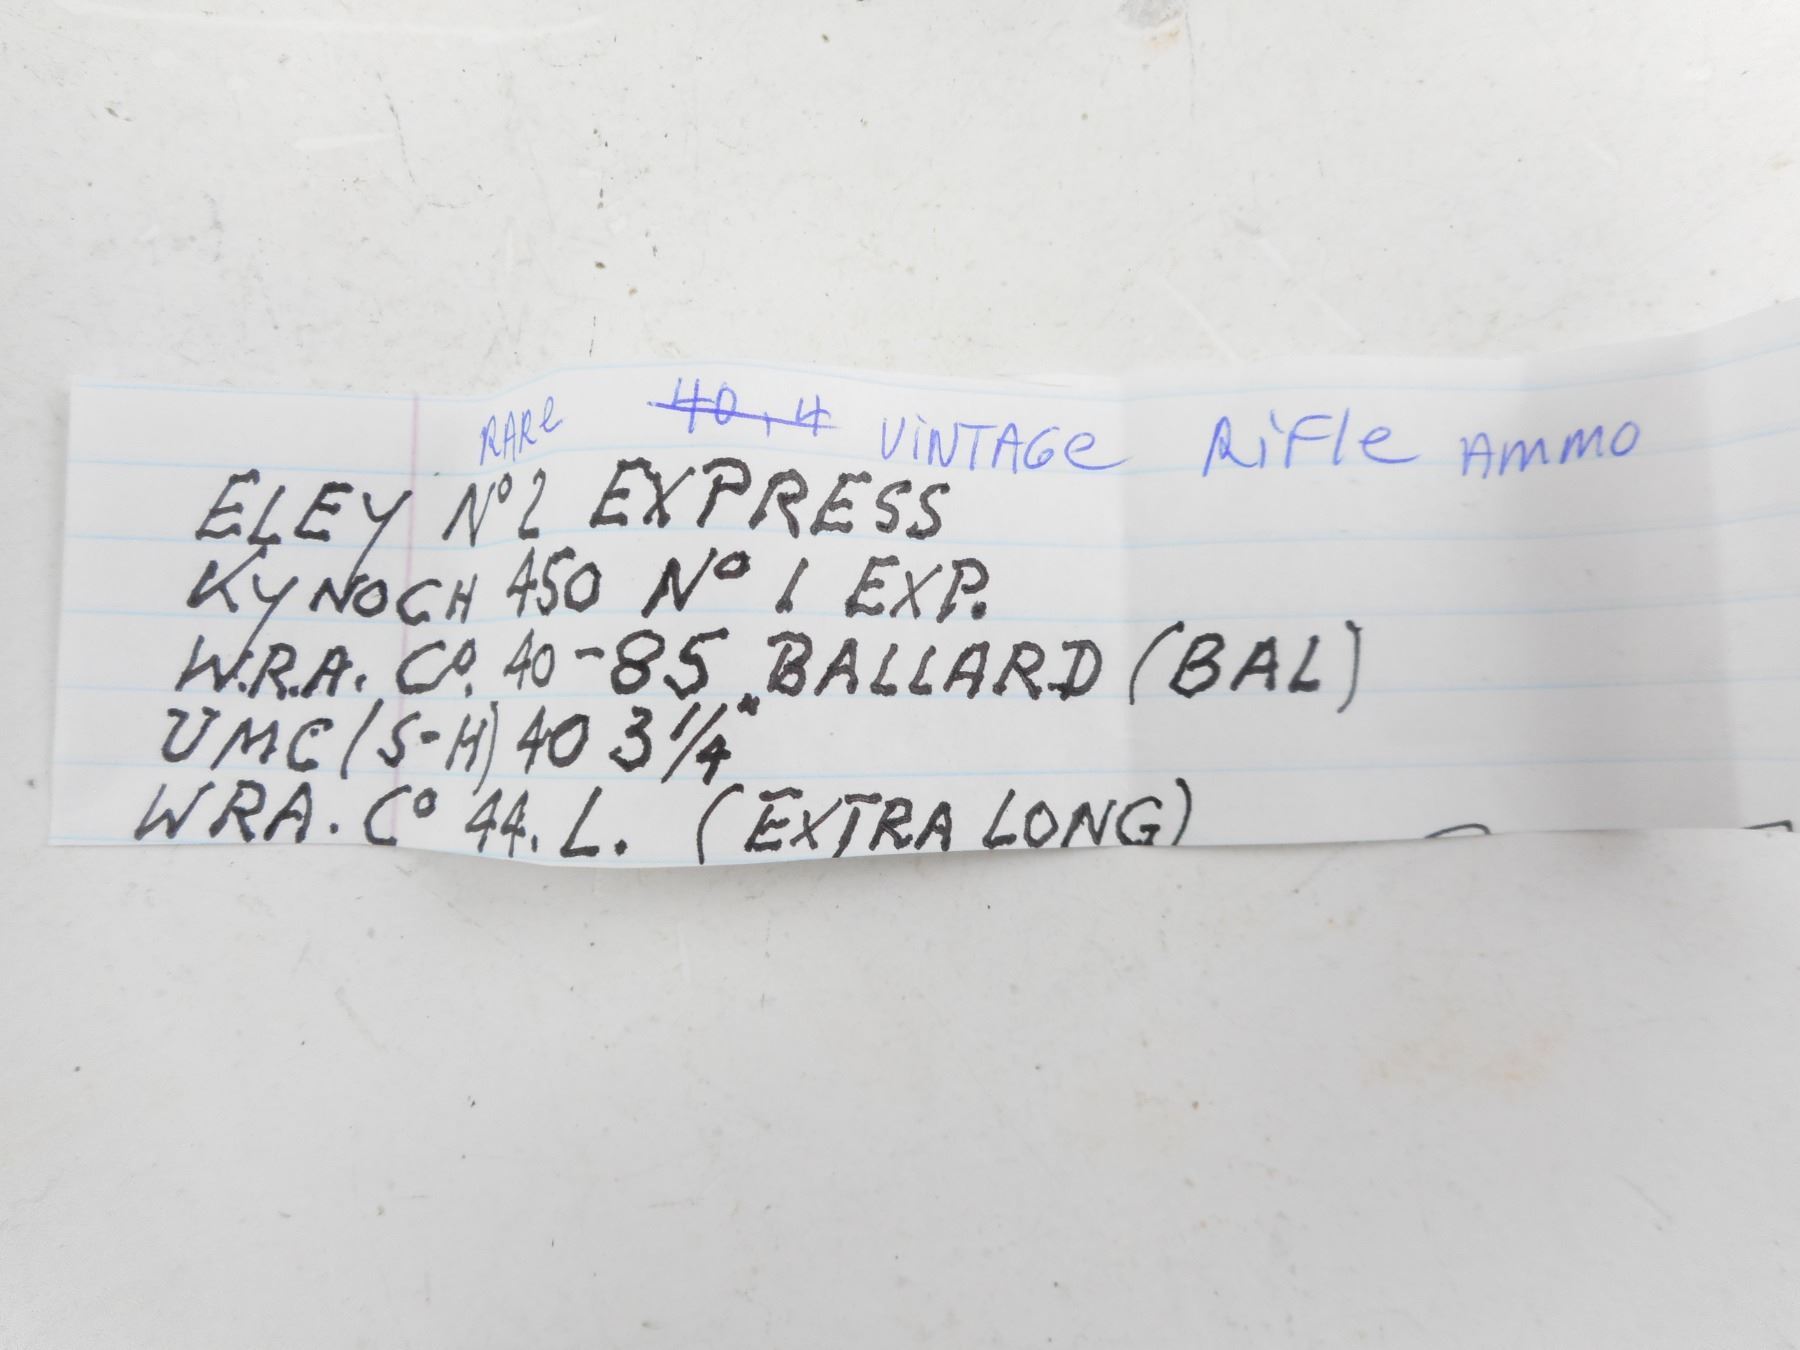 RARe 40,4 ViNTAGe RiFle AMMO
ELEY Nº2 EXPRESS
KYNOCH 450 Nº 1 EXP.
W.R.A. Cº. 40-85 BALLARD (BAL)
UMC (S-H) 40 3 1/4"
WRA. Cº 44. L. (EXTRA LONG)